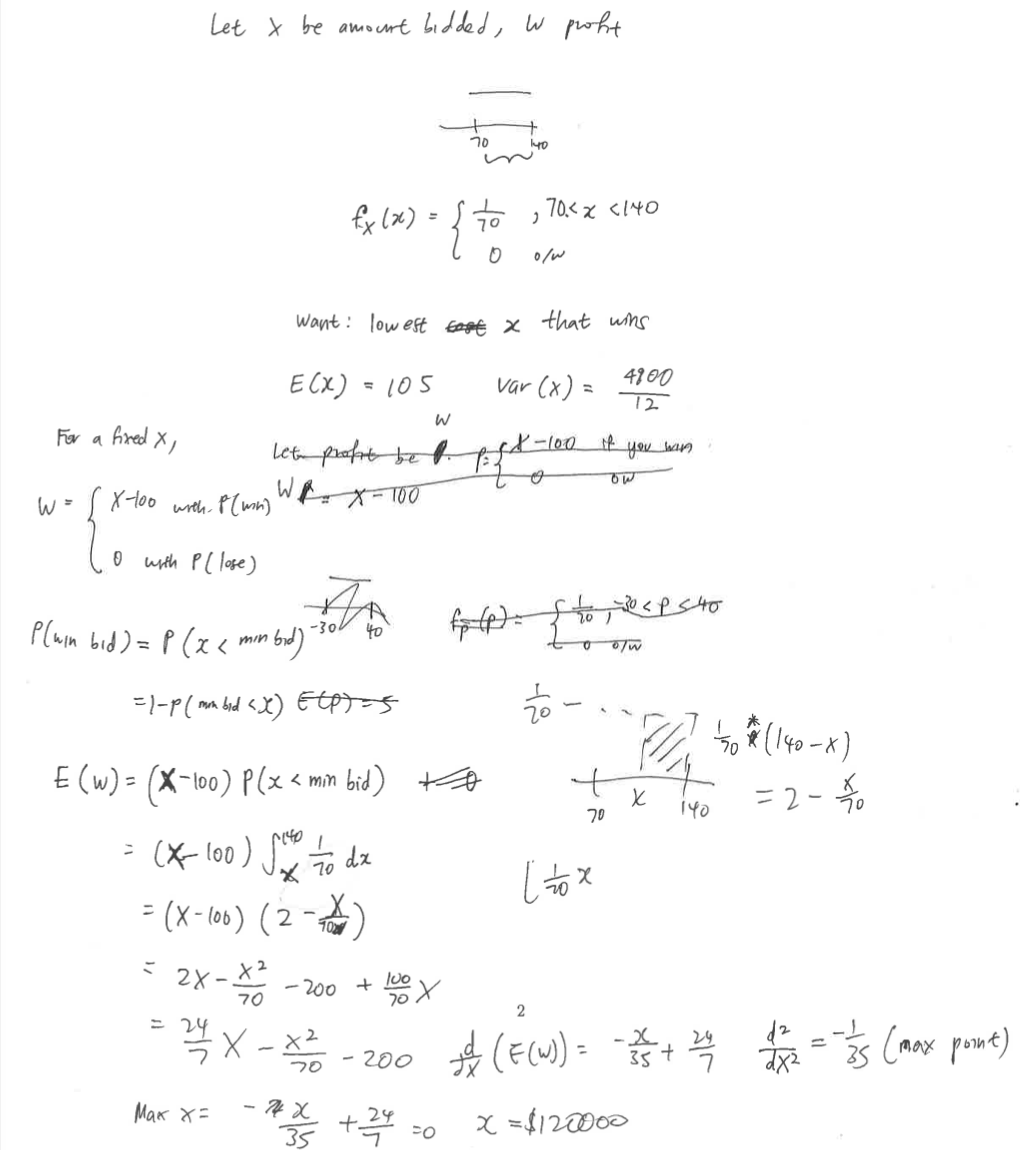 Let X be amount bidded, W profit
70 140
f_X(x) = { 1/70 , 70 < x < 140
0 o/w
Want: lowest cost x that wins
E(X) = 105 Var(X) = 4900/12
For a fixed X,
Let profit be W. P = { X-100 if you win
0 ow
W = X-100
W = { X-100 with P(win)
0 with P(lose)
-30 40
f_P(p) = { 1/70 , -30 < p < 40
0 o/w
P(win bid) = P(x < min bid)
= 1-P(min bid < X) E(P) = 5
1/70
70 X 140
1/70 * (140-X)
= 2 - X/70
E(W) = (X-100) P(x < min bid) + 0
= (X-100) ∫_X^140 1/70 dx
[ 1/70 x
= (X-100) (2 - X/70)
= 2X - X²/70 - 200 + 100/70 X
2
= 24/7 X - X²/70 - 200 d/dX (E(W)) = -x/35 + 24/7 d²/dX² = -1/35 (max point)
Max X = -x/35 + 24/7 = 0 x = $120000